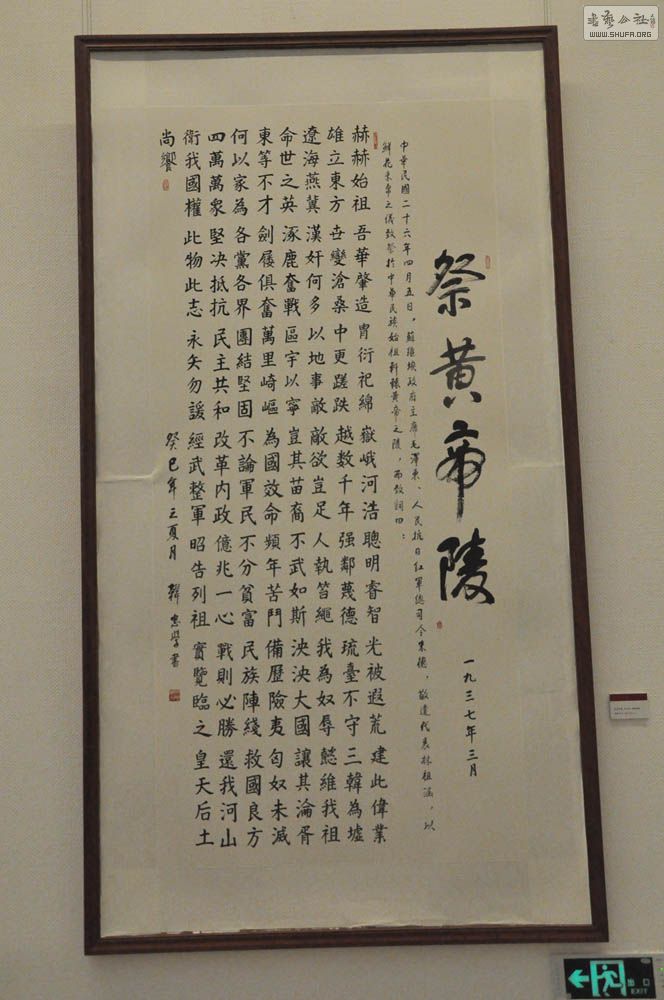 祭黄帝陵
一九三七年三月
中華民國二十六年四月五日，蘇維埃政府主席毛澤東、人民抗日紅軍總司令朱德，敬遣代表林祖涵，以
鮮花束帛之儀致祭於中華民族始祖軒轅黃帝之陵，而致詞曰：
赫赫始祖 吾華肇造 胄衍祀綿 嶽峨河浩 聰明睿智 光被遐荒 建此偉業
雄立東方 世變滄桑 中更蹉跌 越数千年 强鄰蔑德 琉臺不守 三韓為墟
遼海燕冀 漢奸何多 以地事敵 敵欲豈足 人執笞繩 我為奴辱 懿維我祖
命世之英 涿鹿奮戰 區宇以寧 豈其苗裔 不武如斯 泱泱大國 讓其淪胥
東等不才 劍屨俱奮 萬里崎嶇 為國效命 頻年苦鬥 備歷險夷 匈奴未滅
何以家為 各黨各界 團結堅固 不論軍民 不分貧富 民族陣綫 救國良方
四萬萬衆 堅决抵抗 民主共和 改革内政 億兆一心 戰則必勝 還我河山
衛我國權 此物此志 永矢勿諼 經武整軍 昭告列祖 實覽臨之 皇天后土
尚饗
癸巳年之夏月 韓忠學書
書藝公社
WWW.SHUFA.ORG
出口
EXIT